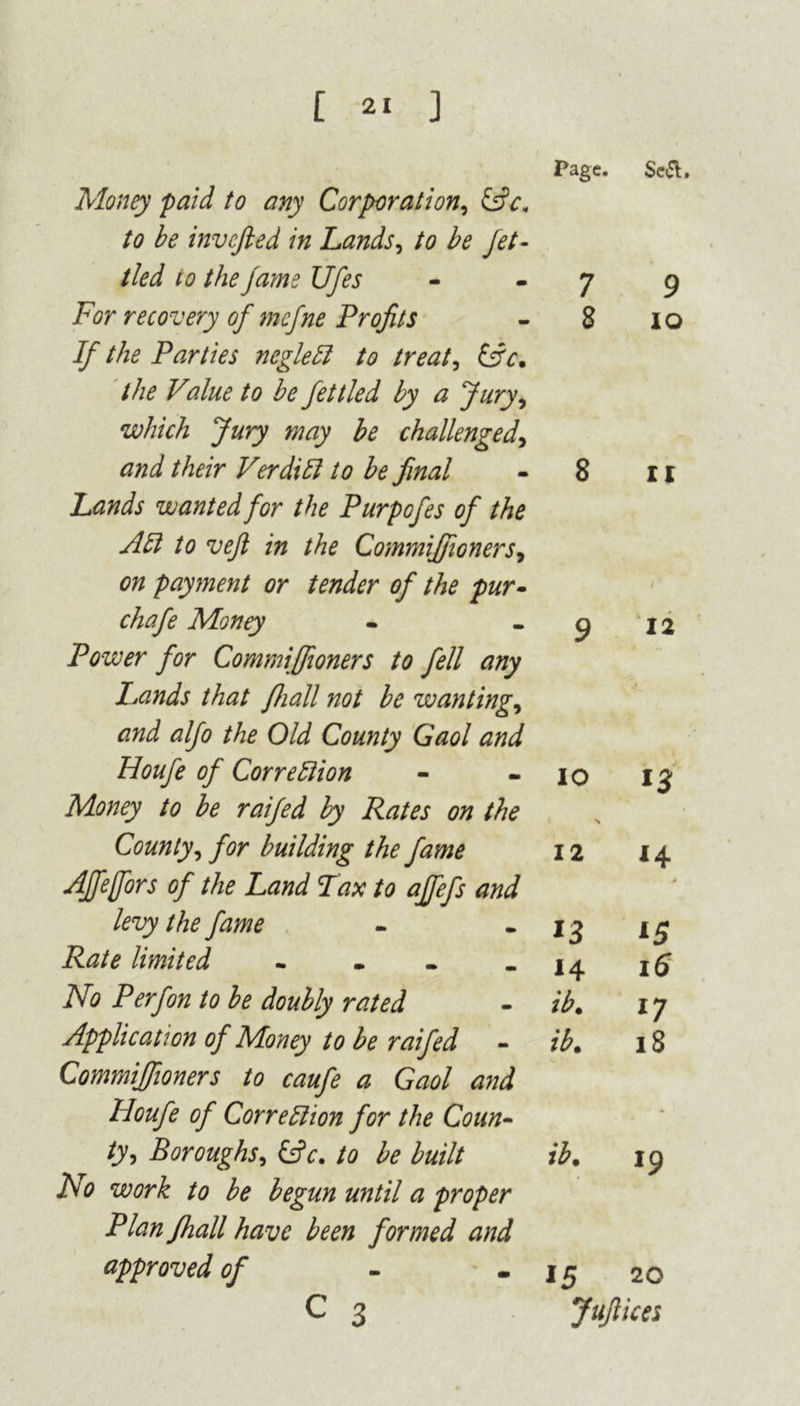 [ 21 ]
Page. Sect.
Money paid to any Corporation, &c.
to be inveſted in Lands, to be ſet-
tled to the ſame Uſes - - 7 9
For recovery of meſne Profits - 8 10
If the Parties neglect to treat, &c.
the Value to be ſettled by a Jury,
which Jury may be challenged,
and their Verdict to be final - 8 11
Lands wanted for the Purpoſes of the
Act to veſt in the Commiſſioners,
on payment or tender of the pur-
chaſe Money - - 9 12
Power for Commiſſioners to ſell any
Lands that ſhall not be wanting,
and alſo the Old County Gaol and
Houſe of Correction - - 10 13
Money to be raiſed by Rates on the
County, for building the ſame 12 14
Aſſeſſors of the Land Tax to aſſeſs and
levy the ſame - - 13 15
Rate limited - - - - 14 16
No Perſon to be doubly rated - ib. 17
Application of Money to be raiſed - ib. 18
Commiſſioners to cauſe a Gaol and
Houſe of Correction for the Coun-
ty, Boroughs, &c. to be built ib. 19
No work to be begun until a proper
Plan ſhall have been formed and
approved of - - 15 20
C 3 Juſtices